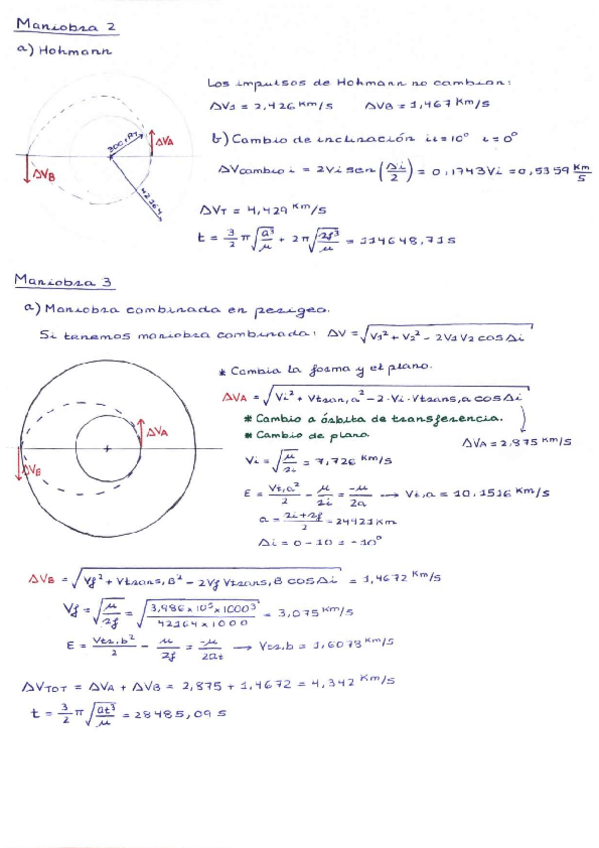 Maniobra 2
a) Hohmann
Los impulsos de Hohmann no cambian:
ΔV1 = 2,426 Km/s   ΔVB = 1,467 Km/s
ΔVA
ΔVB
42164
b) Cambio de inclinación i1=10° i=0°
ΔVcambio i = 2Vi sen(Δi/2) = 0,1743Vi = 0,5359 Km/s
ΔVT = 4,429 Km/s
t = 3/2 π √(a³/μ) + 2π √(rf³/μ) = 114648,71s
Maniobra 3
a) Maniobra combinada en perigeo.
Si tenemos maniobra combinada: ΔV = √(V1² + V2² - 2V1V2 cosΔi)
* Cambia la forma y el plano.
ΔVA = √(Vi² + Vtran,a² - 2·Vi·Vtrans,a cosΔi)
* Cambio a órbita de transferencia.
* Cambio de plano
ΔVA = 2,875 Km/s
ΔVA
ΔVB
Vi = √(μ/ri) = 7,726 Km/s
E = Vt,a²/2 - μ/ri = -μ/2a → Vt,a = 10,1516 Km/s
a = (ri+rf)/2 = 24421 Km
Δi = 0 - 10 = -10°
ΔVB = √(Vf² + Vtrans,B² - 2Vf Vtrans,B cosΔi) = 1,4672 Km/s
Vf = √(μ/rf) = √(3,986×10⁵×1000³/42164×1000) = 3,075 Km/s
E = Vtr,b²/2 - μ/rf = -μ/2at → Vtr,b = 1,6078 Km/s
ΔVTOT = ΔVA + ΔVB = 2,875 + 1,4672 = 4,342 Km/s
t = 3/2 π √(at³/μ) = 28485,09 s